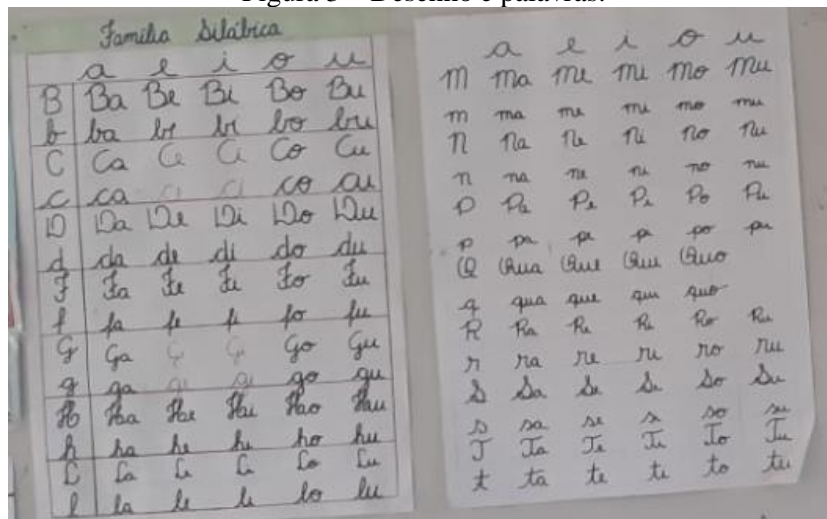 Família Silábica
a e i o u
B Ba Be Bi Bo Bu
b ba be bi bo bu
C Ca Ce Ci Co Cu
c ca ce ci co cu
D Da De Di Do Du
d da de di do du
F Fa Fe Fi Fo Fu
f fa fe fi fo fu
G Ga Ge Gi Go Gu
g ga ge gi go gu
H Ha He Hi Ho Hu
h ha he hi ho hu
L La Le Li Lo Lu
l la le li lo lu
a e i o u
M Ma Me Mi Mo Mu
m ma me mi mo mu
N Na Ne Ni No Nu
n na ne ni no nu
P Pa Pe Pi Po Pu
p pa pe pi po pu
Q Qua Que Qui Quo
q qua que qui quo
R Ra Re Ri Ro Ru
r ra re ri ro ru
S Sa Se Si So Su
s sa se si so su
T Ta Te Ti To Tu
t ta te ti to tu